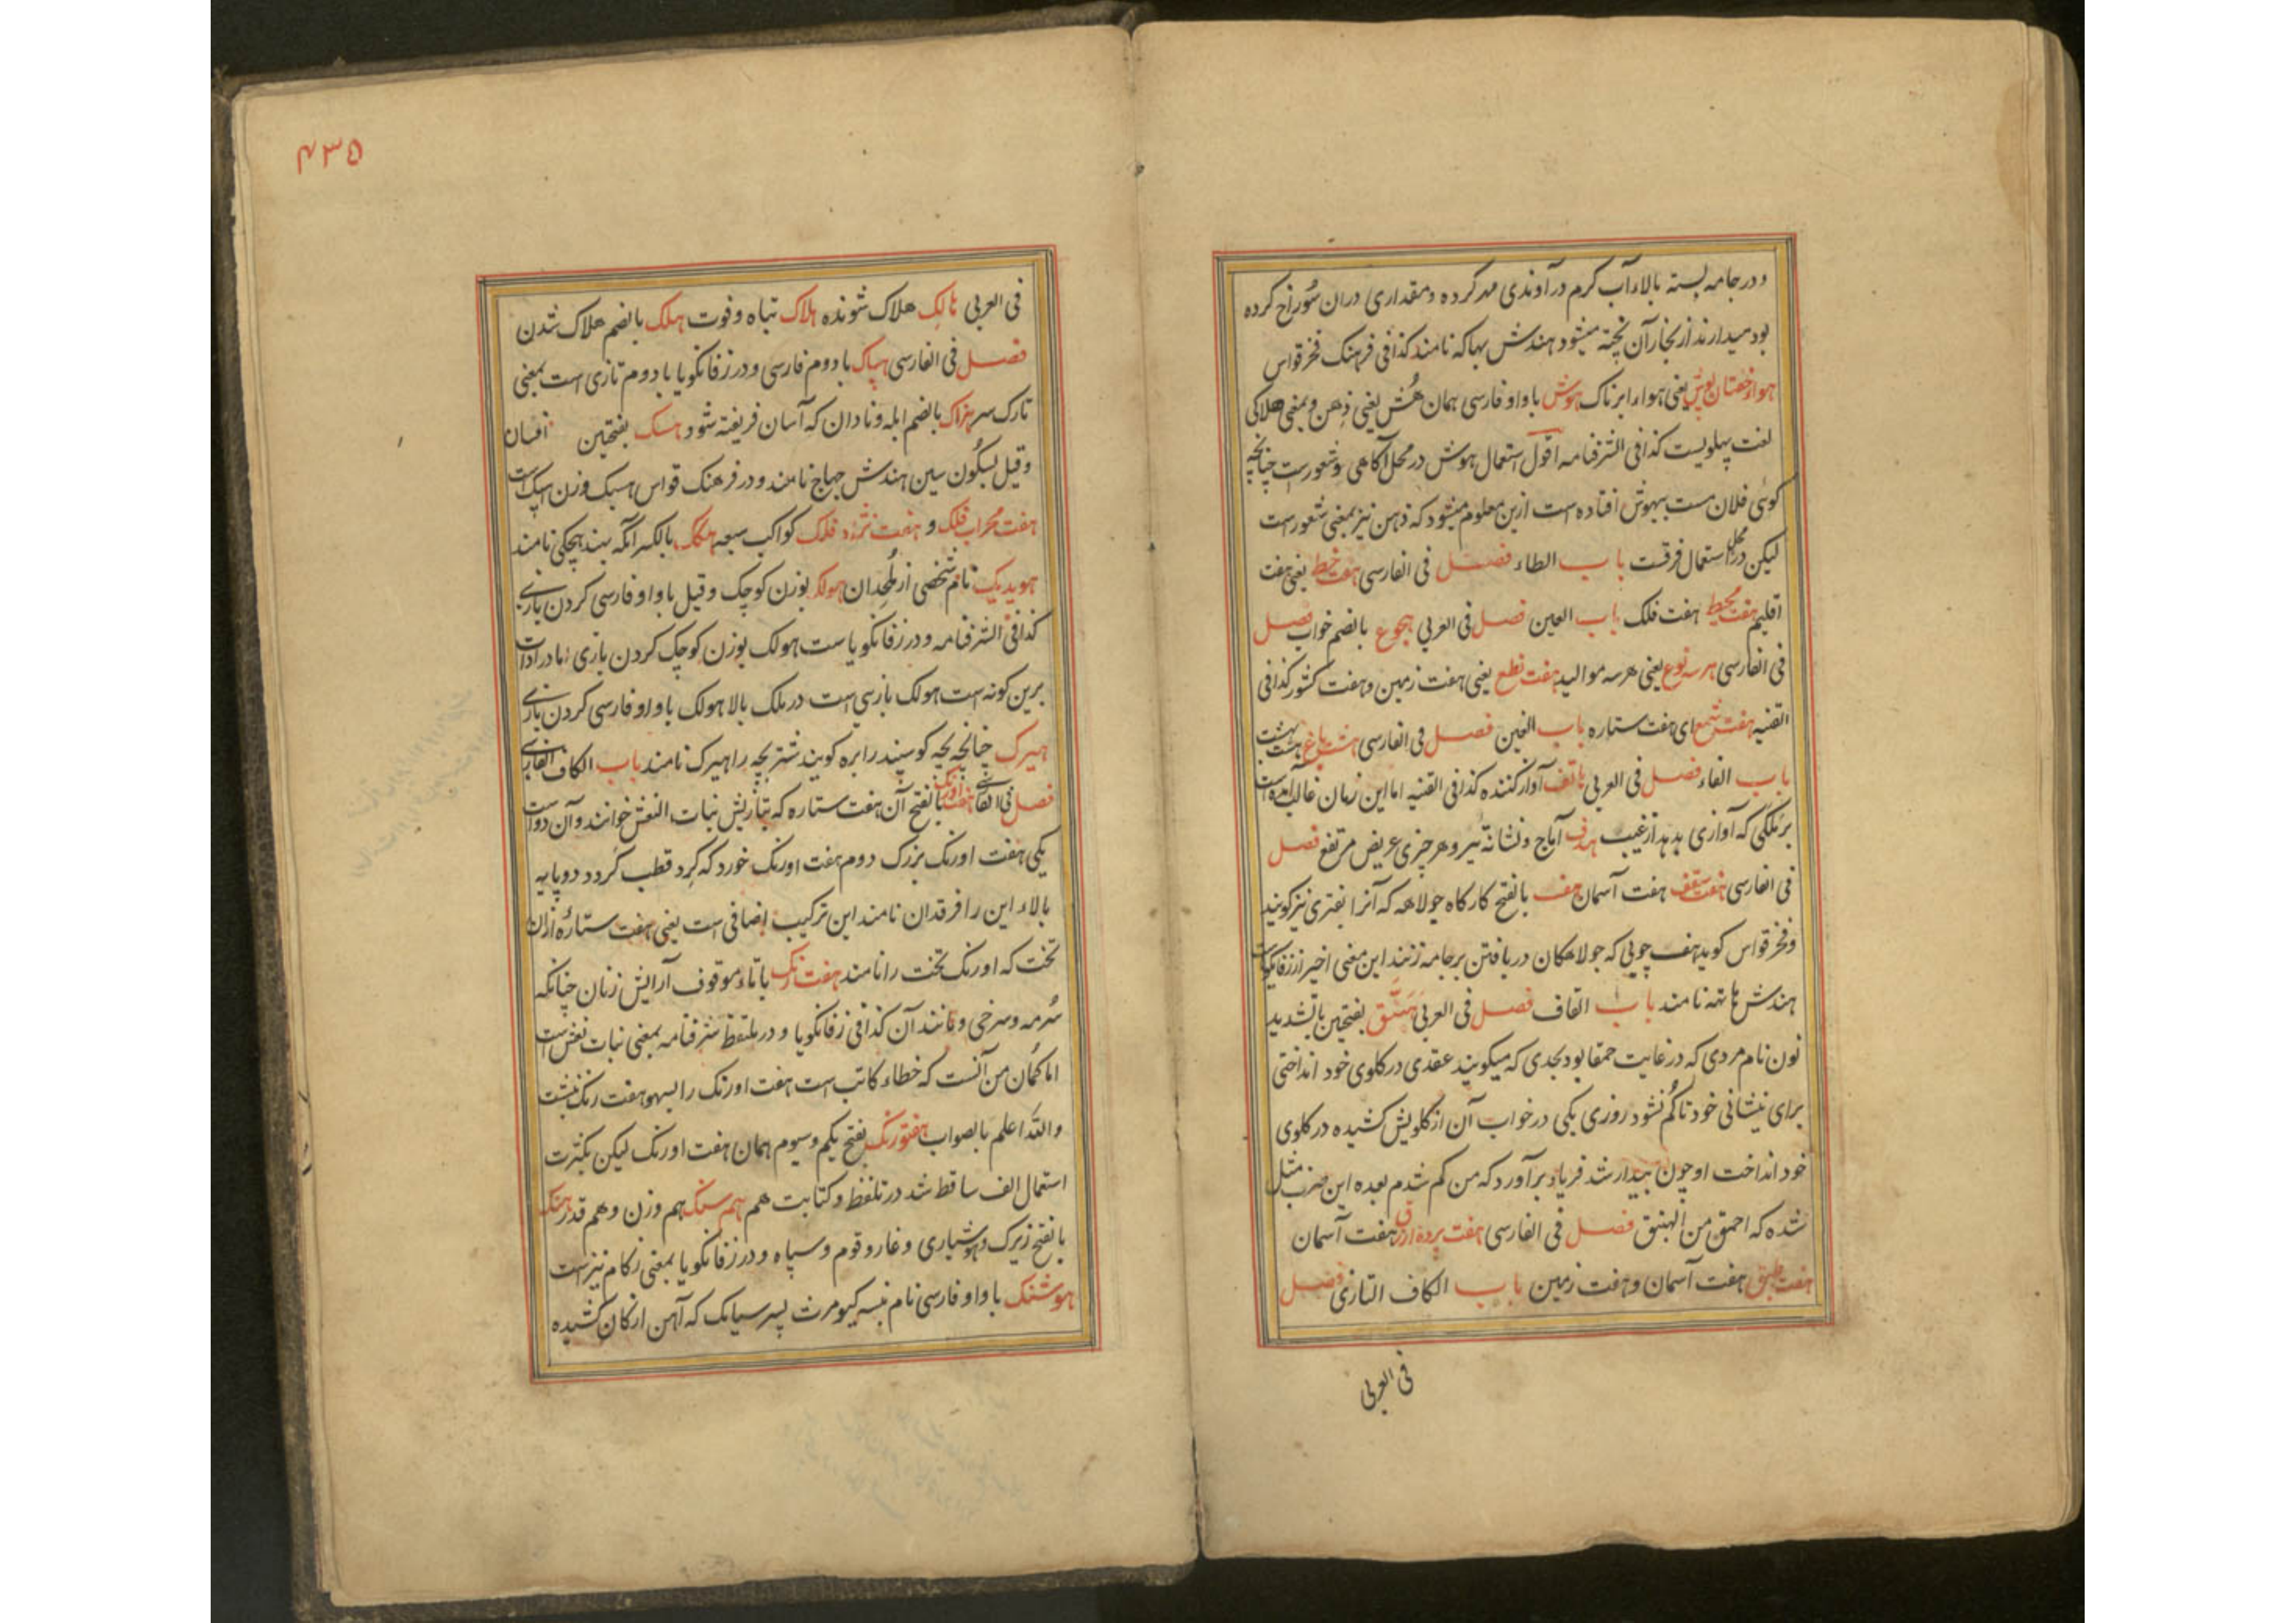 و در جامه بسته بالاء آب کرم در آوندی مهر کرده و مقداری دران سُوراخ کرده
بود میدارند از بخار آن پخته میشود هندش بهاکه نامند کذا فی فرهنک فخر قواس
یعنی هواء ابرناک هوش با واو فارسی همان هُش یعنی ذهن و بمعنی هلاکی
لغت پهلویست کذا فی الشرفنامه اقول استعمال هوش در محل آکاهی و شعورست چنانچه
کوئی فلان مست بیهوش افتاده است ازین معلوم میشود که ذهن نیز بمعنی شعورست
لیکن در محل استعمال فرقت باب الطاء فصل فی الفارسی هفت خط یعنی هفت
اقلیم هفت محیط هفت فلک باب العین فصل فی العربی هجوع بالضم خواب فصل
فی الفارسی هر سه نوع یعنی هر سه موالید هفت نطع یعنی هفت زمین و هفت کشور کذا فی
القنیه هفت شمع ای هفت ستاره باب الغین فصل فی الفارسی هشت باغ هشت بهشت
باب الفاء فصل فی العربی هاتف آواز کننده کذا فی القنیه اما این زمان غالب آمده است
بر ملکی که آوازی بدهد از غیب هدف آماج و نشانهٔ تیر و هر چیزی عریض مرتفع فصل
فی الفارسی هفت سقف هفت آسمان هف بالفتح کارکاه جولاهه که آنرا بفتری نیز کویند
و فخر قواس کوید هف چوبی که جولاهکان در بافتن بر جامه زنند این معنی اخیر از زفانکویاست
هندش هاتهه نامند باب القاف فصل فی العربی هَبَنَّق بفتحین بالتشدید
نون نام مردی که در غایت حمقا بود بحدی که میکویند عقدی در کلوی خود انداختی
برای نشانی خود تا کُم نشود روزی یکی در خواب آن از کلویش کشیده در کلوی
خود انداخت او چون بیدار شد فریاد بر آورد که من کم شدم بعده این ضرب مثل
شده که احمق من الهبنق فصل فی الفارسی هفت پرده ازرق هفت آسمان
هفت طبق هفت آسمان و هفت زمین باب الکاف التازی فصل
فی العربی
۴۳۵
فی العربی هالک هلاک شونده هلاک تباه و فوت هلک بالضم هلاک شدن
فصل فی الفارسی هپاک با دوم فارسی و در زفانکویا با دوم تازی است بمعنی
تارک سر هزاک بالضم ابله و نادان که آسان فریفته شود هسک بفتحین افسان
و قیل بسکُون سین هندش چهاج نامند و در فرهنک قواس هسبک وزن اسپک است
هفت محراب فلک و هفت فلک کواکب سبعه هکک بالکسر آنکه بهند هچکی نامند
نام شخصی از ملحدان هولک بوزن کوچک و قیل با واو فارسی کردن بازی
کذا فی الشرفنامه و در زفانکویاست هولک بوزن کوچک کردن بازی اما در ادات
برین کونه است هولک بازسی است در ملک بالا هولک با واو فارسی کردن بازی
هیرک چنانچه بچه کوسپند را بره کویند شتر بچه را هیرک نامند باب الکاف الفارسی
فصل فی الفارسی هفت اورنک بالفتح آن هفت ستاره که بتازیش بنات النعش خوانند و آن دو است
یکی هفت اورنک بزرک دوم هفت اورنک خورد که کِرد قطب کردد دو پایه
بالاء این را فرقدان نامند این ترکیب اضافی است یعنی هفت ستارهٔ ازان
تخت که اورنک تخت را نامند هفت رنک با تاء موقوف آرایش زنان چنانکه
سُرمه و سرخی و مانند آن کذا فی زفانکویا و در ملتقظ شرفنامه بمعنی بنات نعش است
اما کُمان من آنست که خطاء کاتب است هفت اورنک را بسهو هفت رنک نبشت
والله اعلم بالصواب هفتورنک بفتح یکم و سیوم همان هفت اورنک لیکن بکثرت
استعمال الف ساقط شد در تلفظ و کتابت هم هم سنک هم وزن و هم قدر هنک
بالفتح زیرک و هوشیاری و غار و قوم و سپاه و در زفانکویا بمعنی زکام نیز است
هوشنک با واو فارسی نام نبسه کیومرث پسر سیامک که آهن از کان کشیده